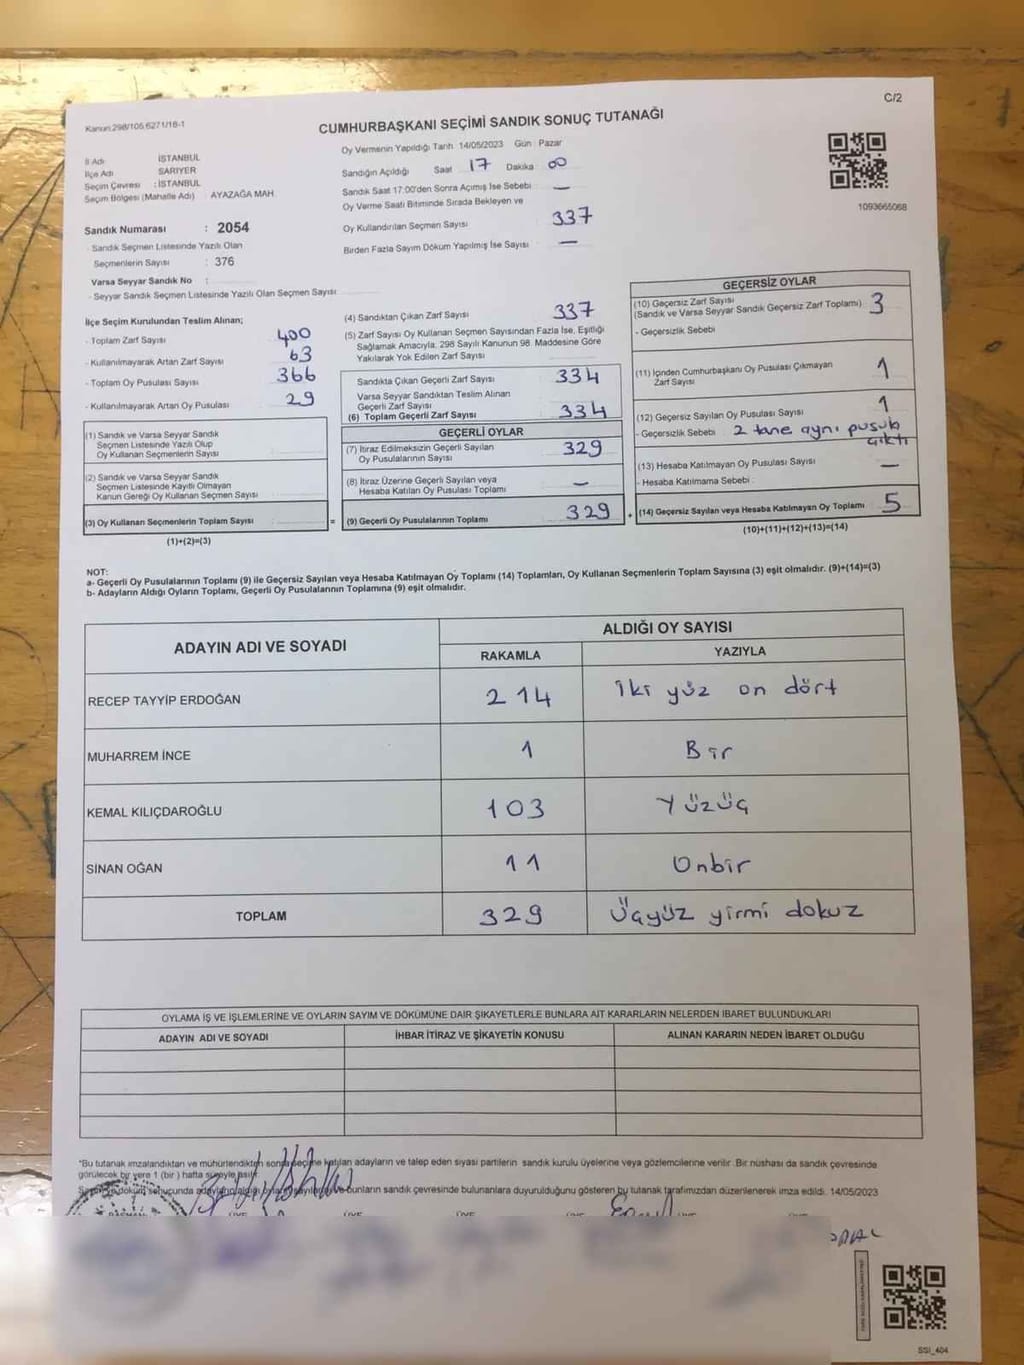 C/2
Kanun:298/105,6271/18-1
CUMHURBAŞKANI SEÇİMİ SANDIK SONUÇ TUTANAĞI
İl Adı İSTANBUL
İlçe Adı SARIYER
Seçim Çevresi : İSTANBUL
Seçim Bölgesi (Mahalle Adı) : AYAZAĞA MAH.
Sandık Numarası : 2054
- Sandık Seçmen Listesinde Yazılı Olan
Seçmenlerin Sayısı : 376
Varsa Seyyar Sandık No :
- Seyyar Sandık Seçmen Listesinde Yazılı Olan Seçmen Sayısı
Oy Vermenin Yapıldığı Tarih 14/05/2023 Gün : Pazar
Sandığın Açıldığı Saat 17 Dakika 00
Sandık Saat 17:00'den Sonra Açımış İse Sebebi —
Oy Verme Saati Bitiminde Sırada Bekleyen ve
Oy Kullandırılan Seçmen Sayısı 337
Birden Fazla Sayım Döküm Yapılmış İse Sayısı —
1093665068
İlçe Seçim Kurulundan Teslim Alınan;
- Toplam Zarf Sayısı 400
- Kullanılmayarak Artan Zarf Sayısı 63
- Toplam Oy Pusulası Sayısı 366
- Kullanılmayarak Artan Oy Pusulası 29
(1) Sandık ve Varsa Seyyar Sandık
Seçmen Listesinde Yazılı Olup
Oy Kullanan Seçmenlerin Sayısı
(2) Sandık ve Varsa Seyyar Sandık
Seçmen Listesinde Kayıtlı Olmayan
Kanun Gereği Oy Kullanan Seçmen Sayısı
(3) Oy Kullanan Seçmenlerin Toplam Sayısı =
(1)+(2)=(3)
(4) Sandıktan Çıkan Zarf Sayısı 337
(5) Zarf Sayısı Oy Kullanan Seçmen Sayısından Fazla İse, Eşitliği
Sağlamak Amacıyla, 298 Sayılı Kanunun 98. Maddesine Göre
Yakılarak Yok Edilen Zarf Sayısı
Sandıkta Çıkan Geçerli Zarf Sayısı 334
Varsa Seyyar Sandıktan Teslim Alınan
Geçerli Zarf Sayısı
(6) Toplam Geçerli Zarf Sayısı 334
GEÇERLİ OYLAR
(7) İtiraz Edilmeksizin Geçerli Sayılan
Oy Pusulalarının Sayısı 329
(8) İtiraz Üzerine Geçerli Sayılan veya
Hesaba Katılan Oy Pusulası Toplamı —
(9) Geçerli Oy Pusulalarının Toplamı 329 +
GEÇERSİZ OYLAR
(10) Geçersiz Zarf Sayısı
(Sandık ve Varsa Seyyar Sandık Geçersiz Zarf Toplamı) 3
- Geçersizlik Sebebi
(11) İçinden Cumhurbaşkanı Oy Pusulası Çıkmayan
Zarf Sayısı 1
(12) Geçersiz Sayılan Oy Pusulası Sayısı 1
- Geçersizlik Sebebi 2 tane aynı pusula
çıktı
(13) Hesaba Katılmayan Oy Pusulası Sayısı —
- Hesaba Katılmama Sebebi
(14) Geçersiz Sayılan veya Hesaba Katılmayan Oy Toplamı 5
(10)+(11)+(12)+(13)=(14)
NOT:
a- Geçerli Oy Pusulalarının Toplamı (9) ile Geçersiz Sayılan veya Hesaba Katılmayan Oy Toplamı (14) Toplamları, Oy Kullanan Seçmenlerin Toplam Sayısına (3) eşit olmalıdır. (9)+(14)=(3)
b- Adayların Aldığı Oyların Toplamı, Geçerli Oy Pusulalarının Toplamına (9) eşit olmalıdır.
ADAYIN ADI VE SOYADI
ALDIĞI OY SAYISI
RAKAMLA YAZIYLA
RECEP TAYYİP ERDOĞAN 214 İki yüz on dört
MUHARREM İNCE 1 Bir
KEMAL KILIÇDAROĞLU 103 Yüzüç
SİNAN OĞAN 11 Onbir
TOPLAM 329 Üçyüz yirmi dokuz
OYLAMA İŞ VE İŞLEMLERİNE VE OYLARIN SAYIM VE DÖKÜMÜNE DAİR ŞİKAYETLERLE BUNLARA AİT KARARLARIN NELERDEN İBARET BULUNDUKLARI
ADAYIN ADI VE SOYADI İHBAR İTİRAZ VE ŞİKAYETİN KONUSU ALINAN KARARIN NEDEN İBARET OLDUĞU
*Bu tutanak imzalandıktan ve mühürlendikten sonra seçime katılan adayların ve talep eden siyasi partilerin sandık kurulu üyelerine veya gözlemcilerine verilir. Bir nüshası da sandık çevresinde
görülecek bir yere 1 (bir) hafta süreyle asılır.
Sayım ve döküm sonucunda adayların aldığı ve bunların sandık çevresinde bulunanlara duyurulduğunu gösteren bu tutanak tarafımızdan düzenlenerek imza edildi. 14/05/2023
SSI_404